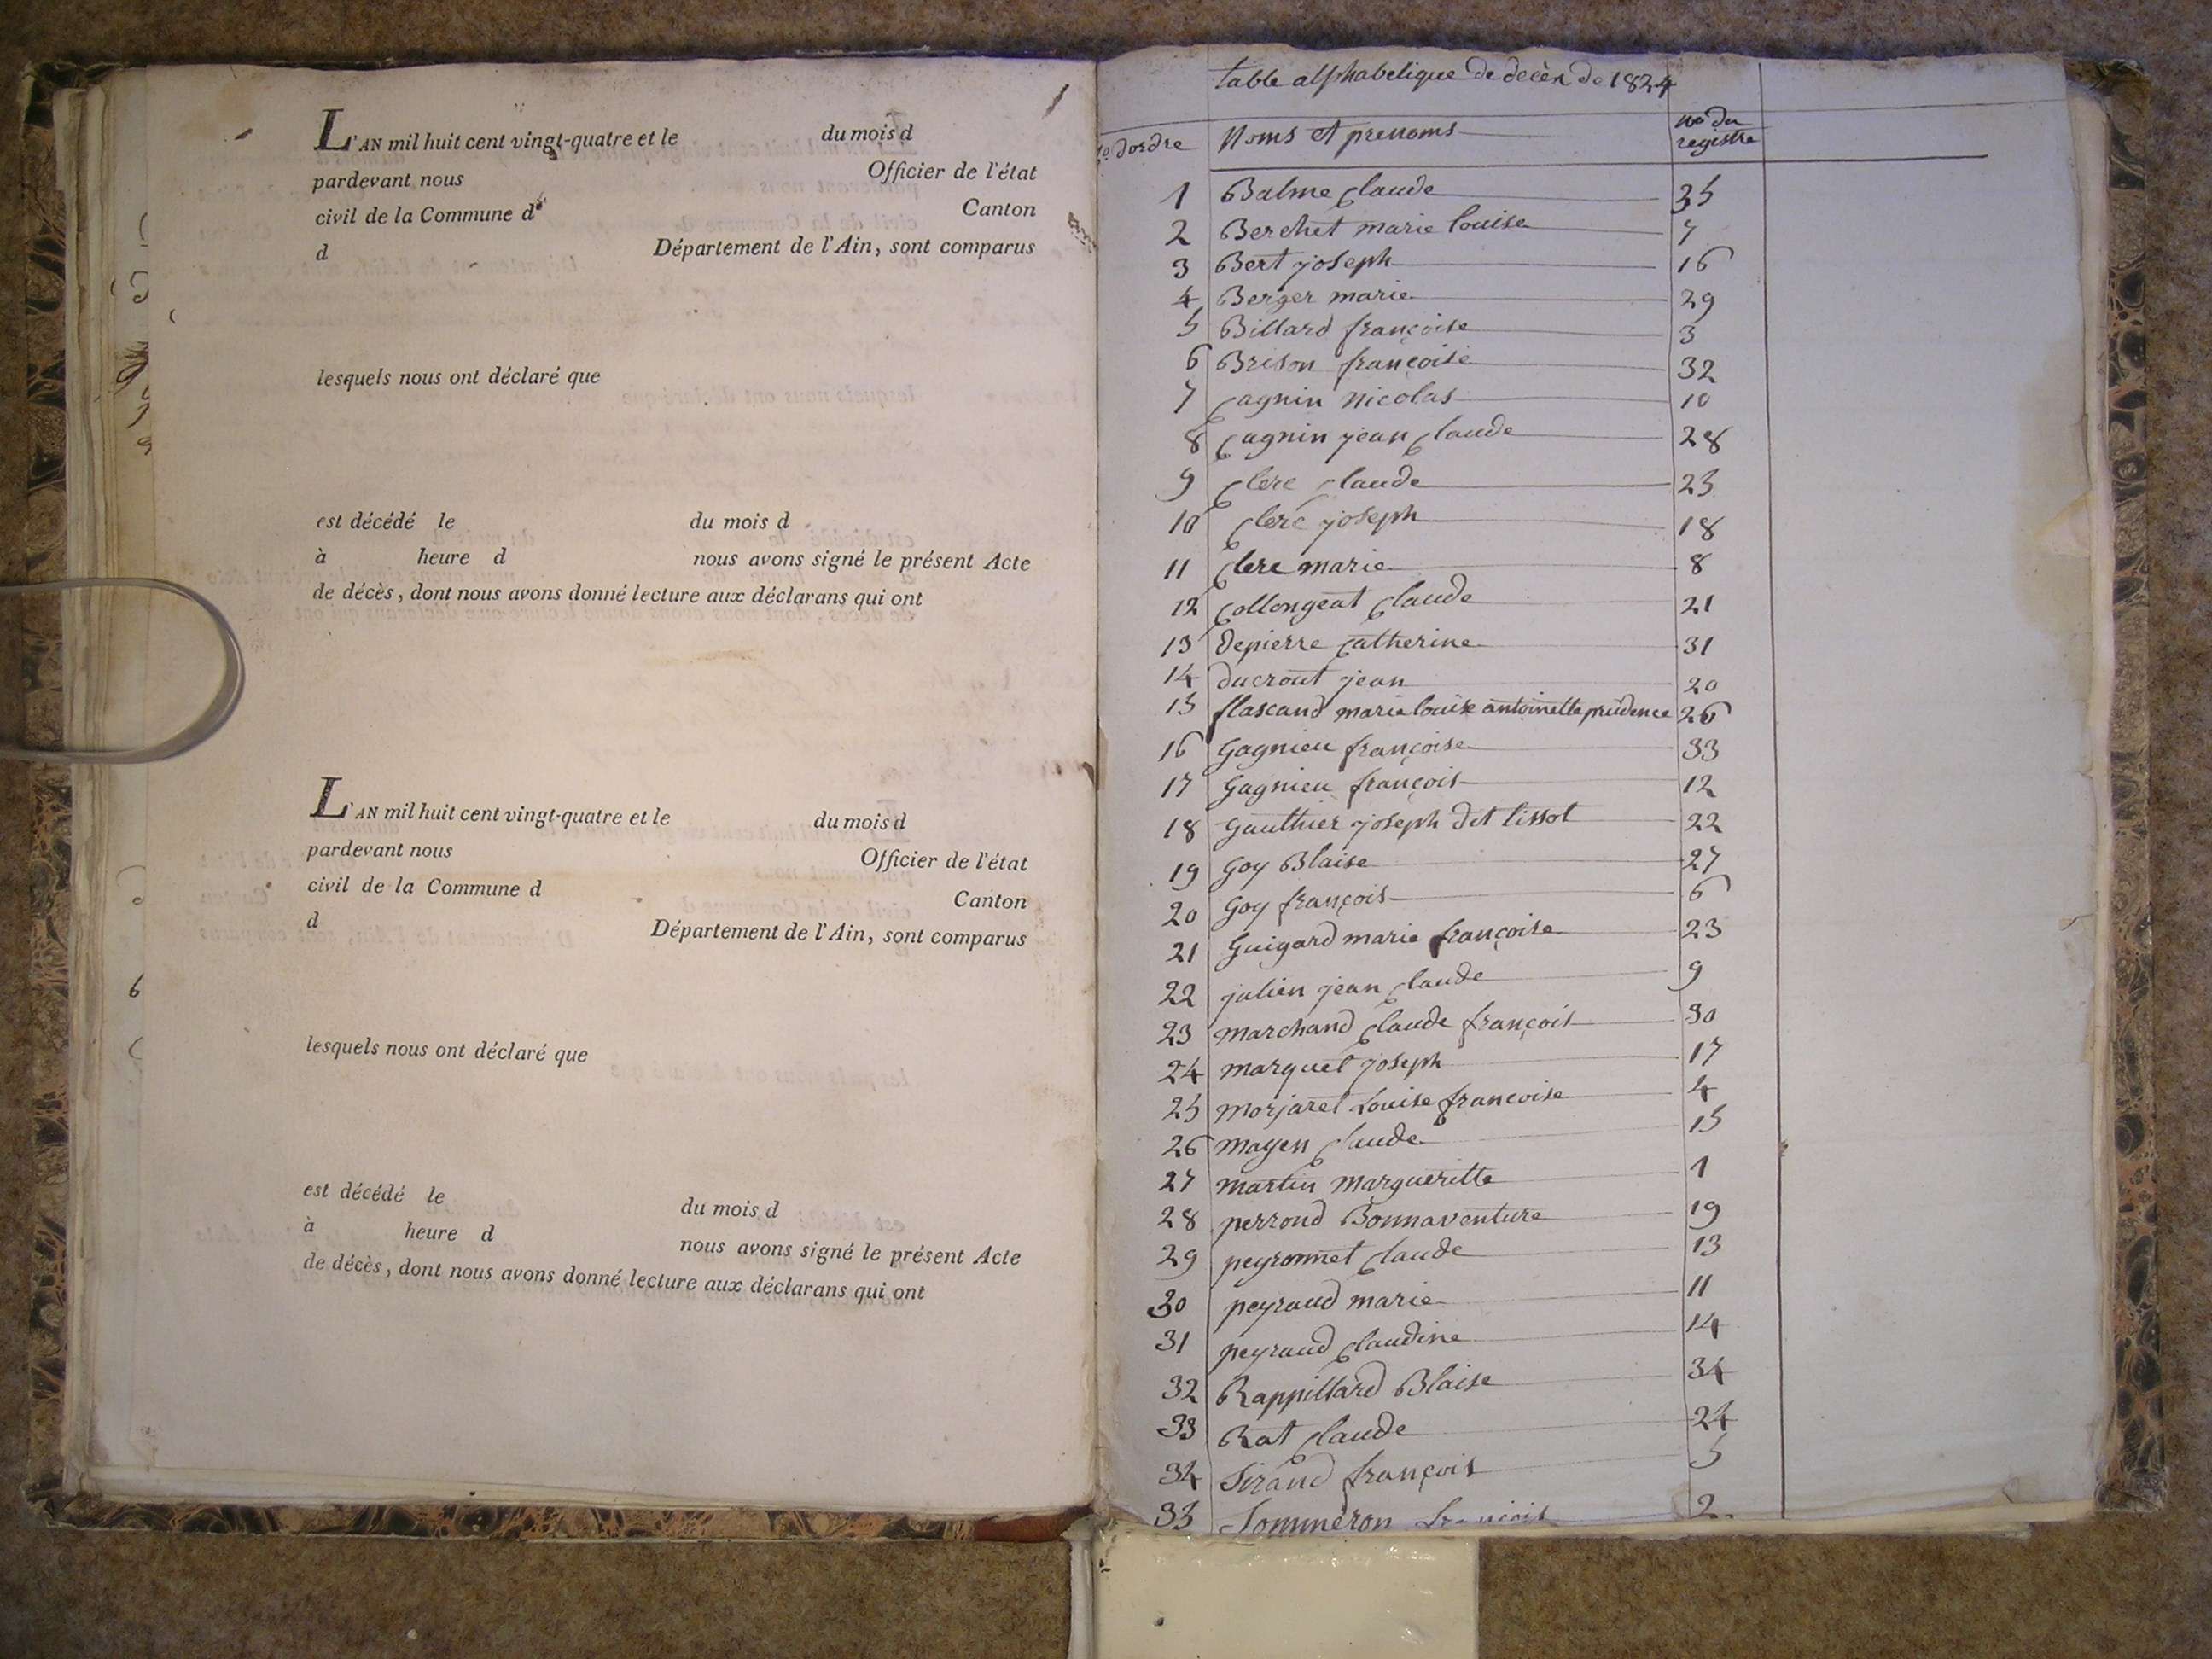 L'AN mil huit cent vingt-quatre et le du mois d
pardevant nous Officier de l'état
civil de la Commune d Canton
d Département de l'Ain, sont comparus
lesquels nous ont déclaré que
est décédé le du mois d
à heure d nous avons signé le présent Acte
de décès, dont nous avons donné lecture aux déclarans qui ont
L'AN mil huit cent vingt-quatre et le du mois d
pardevant nous Officier de l'état
civil de la Commune d Canton
d Département de l'Ain, sont comparus
lesquels nous ont déclaré que
est décédé le du mois d
à heure d nous avons signé le présent Acte
de décès, dont nous avons donné lecture aux déclarans qui ont
table alphabetique de decès de 1824
no. dordre Noms et prenoms no du
registre
1 Balme Claude 35
2 Berchet marie louise 7
3 Bert joseph 16
4 Berger marie 29
5 Billard françoise 3
6 Brison françoise 32
7 Cagnin Nicolas 10
8 Cagnin jean Claude 28
9 Clerc Claude 25
10 Clerc joseph 18
11 Clerc marie 8
12 Collongeat Claude 21
13 depierre Catherine 31
14 ducrout jean 20
15 flascand marie louise antoinette prudence 26
16 Gagnieu françoise 33
17 Gagnieu françois 12
18 Gauthier joseph dit tissot 22
19 Goy Blaise 27
20 Goy françois 6
21 Guigard marie françoise 23
22 julien jean Claude 9
23 marchand Claude françois 30
24 marquet joseph 17
25 morjaret Louise françoise 4
26 mayen Claude 15
27 martin margueritte 1
28 perrond Bonnaventure 19
29 peyronnet Claude 13
30 peyraud marie 11
31 peyraud Claudine 14
32 Rappillard Blaise 34
33 Rat Claude 24
34 Sirand françois 5
35 Sommeron françois 2